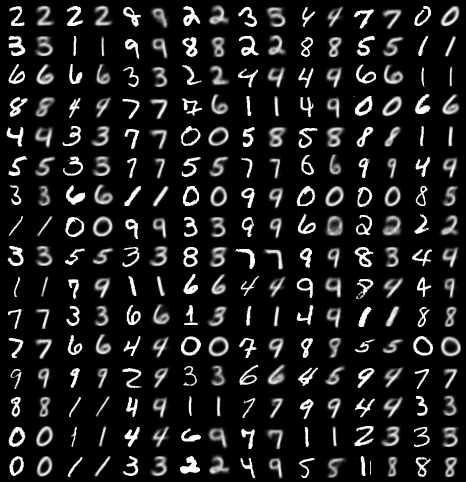 2 2 2 2 8 9 2 2 3 5 4 4 7 7 0 0
3 3 1 1 9 9 8 8 2 2 8 8 5 5 1 1
6 6 6 6 3 3 2 2 4 9 4 9 6 6 1 1
8 8 4 9 7 7 7 6 1 1 4 9 0 0 6 6
4 4 3 3 7 7 0 0 5 8 5 8 8 8 1 1
5 5 3 3 7 7 5 5 7 7 6 6 9 9 4 9
3 3 6 6 1 1 0 0 9 9 0 0 0 0 8 5
1 1 0 0 9 9 3 3 9 9 6 2 2 2 2
3 3 5 5 3 3 8 3 7 7 9 9 8 3 4 9
1 1 7 9 1 1 6 6 4 4 9 9 8 4 4 9
7 7 3 3 6 6 1 3 1 1 4 9 1 1 8 8
7 7 6 6 4 4 0 0 7 9 8 8 5 5 0 0
9 9 9 9 2 9 3 3 6 6 4 5 9 4 7 7
8 8 1 1 4 9 1 1 7 7 9 9 4 4 3 3
0 0 1 1 4 4 6 9 7 7 1 1 2 3 3 5
0 0 1 1 3 3 2 2 4 9 5 5 11 8 8 8